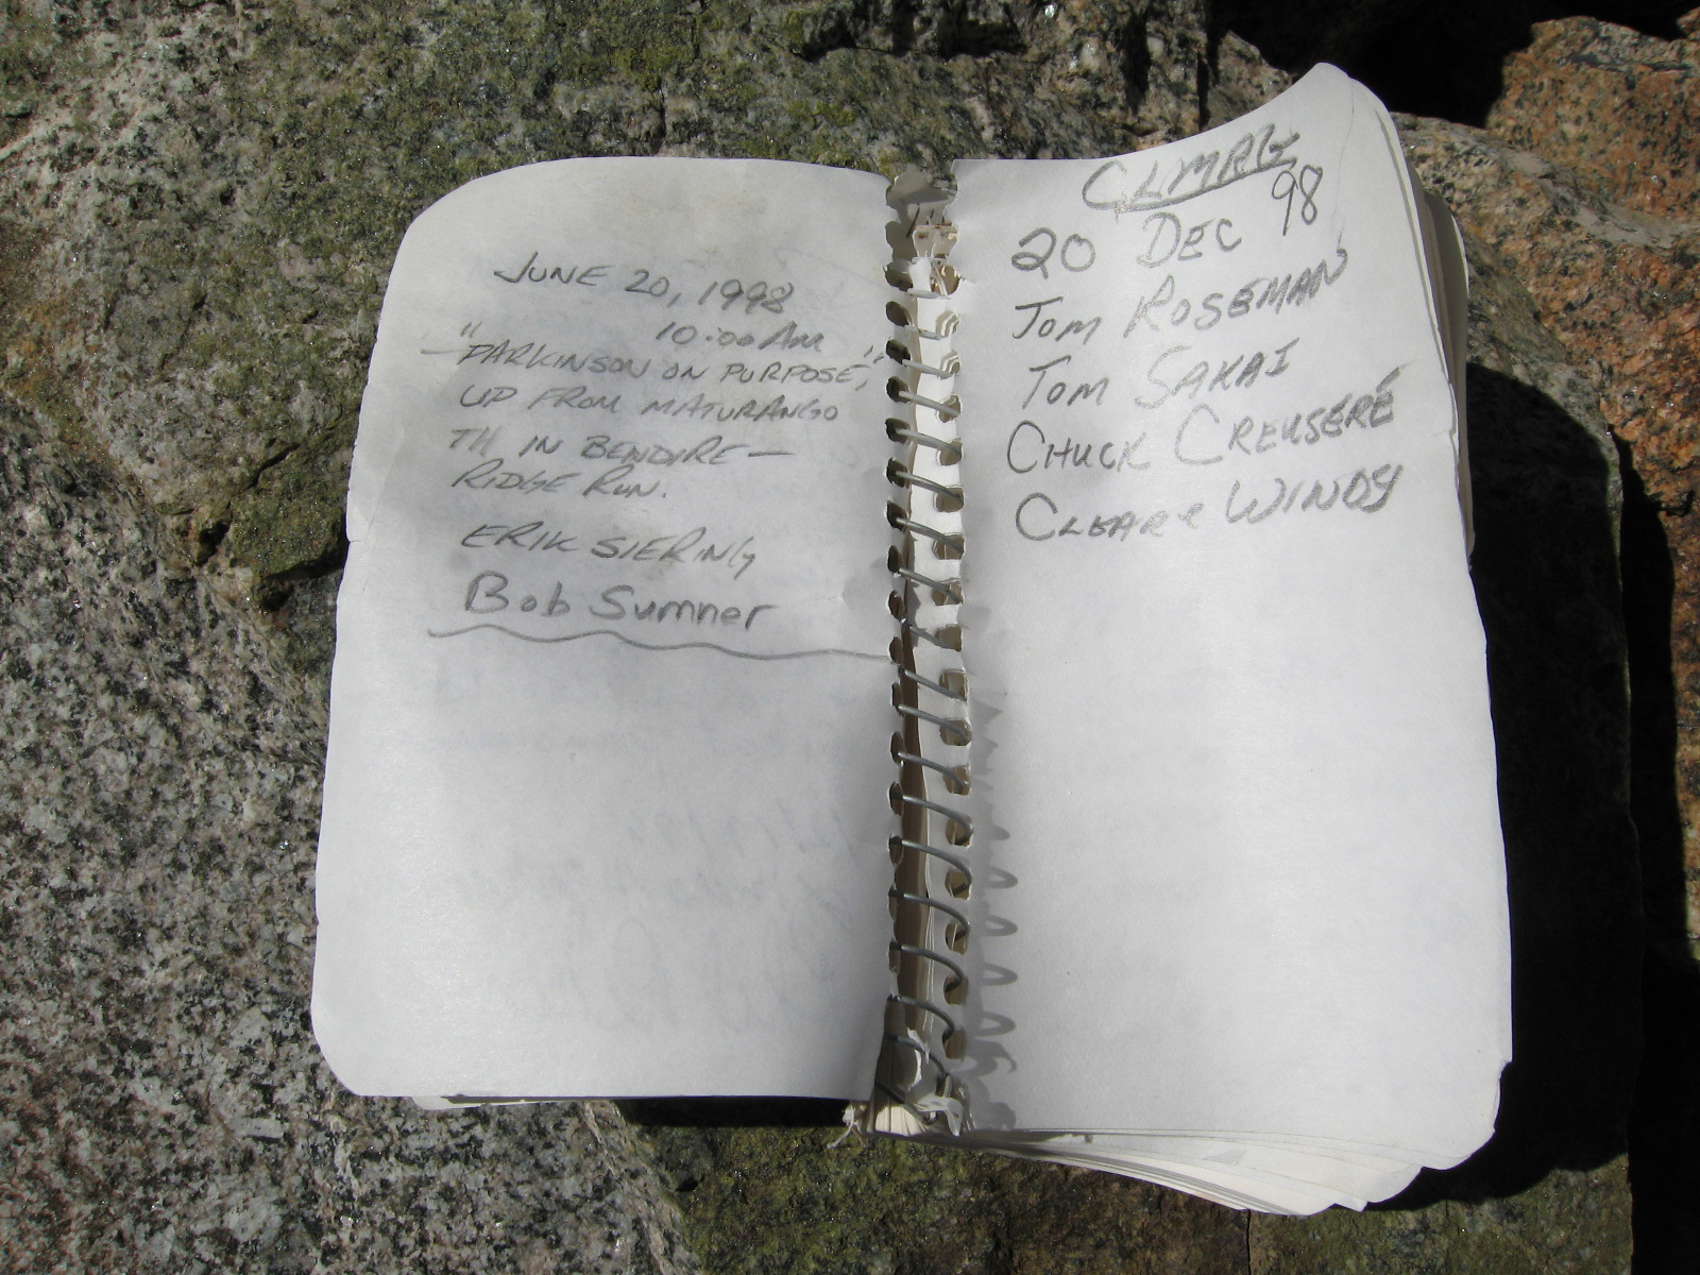 JUNE 20, 1998
10:00 AM
"PARKINSON ON PURPOSE,"
UP FROM MATURANGO
TH IN BENDIRE —
RIDGE RUN.
ERIK SIERING
Bob Sumner
CLMRG
20 DEC 98
TOM ROSEMAN
TOM SAKAI
CHUCK CREUSERÉ
CLEAR & WINDY